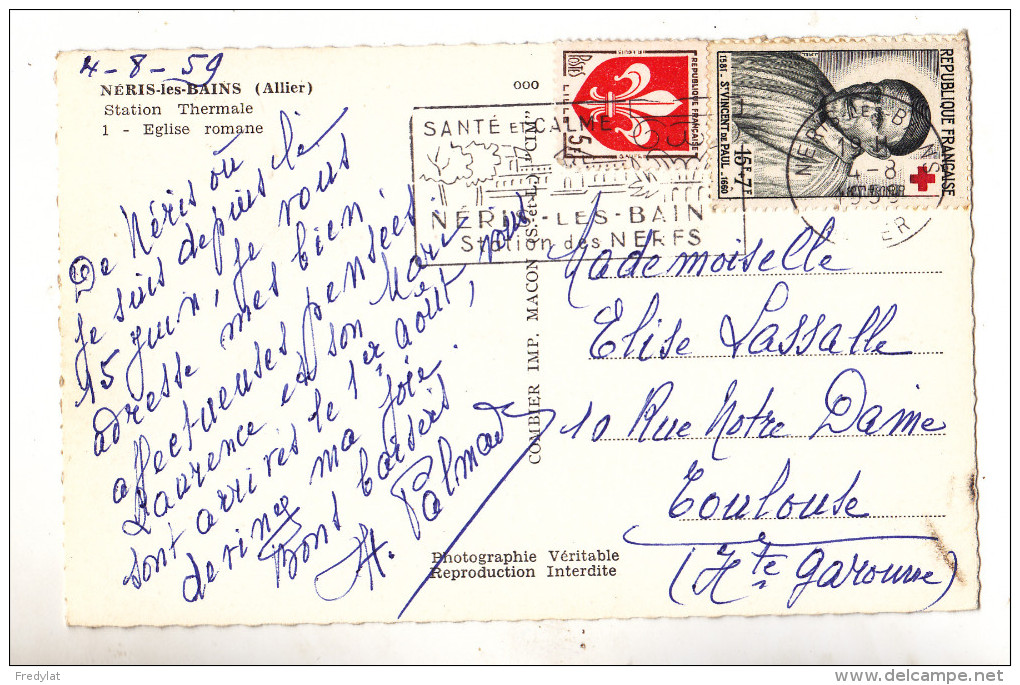 4-8-59
NÉRIS-les-BAINS (Allier)
Station Thermale
1 - Eglise romane
De Néris où
je suis depuis le
15 juin, je vous
adresse mes bien
affectueuses pensées.
Laurence et son Mari
sont arrivés le 1er août, vous
devinez ma joie.
Bons baisers
H. Palmade
ooo
COMBIER IMP. MACON (S.-et-L.) "CIM"
Photographie Véritable
Reproduction Interdite
SANTÉ et CALME
NÉRIS-LES-BAIN
Station des NERFS
POSTES
REPUBLIQUE FRANÇAISE
LILLE
5F
1581. ST VINCENT DE PAUL. 1660
15F+7F
REPUBLIQUE FRANÇAISE
NÉRIS-LES-BAINS
4-8
1959
ALLIER
Mademoiselle
Elise Lassalle
10 Rue Notre Dame
Toulouse
(Hte Garonne)
Fredylat
delcampe.net